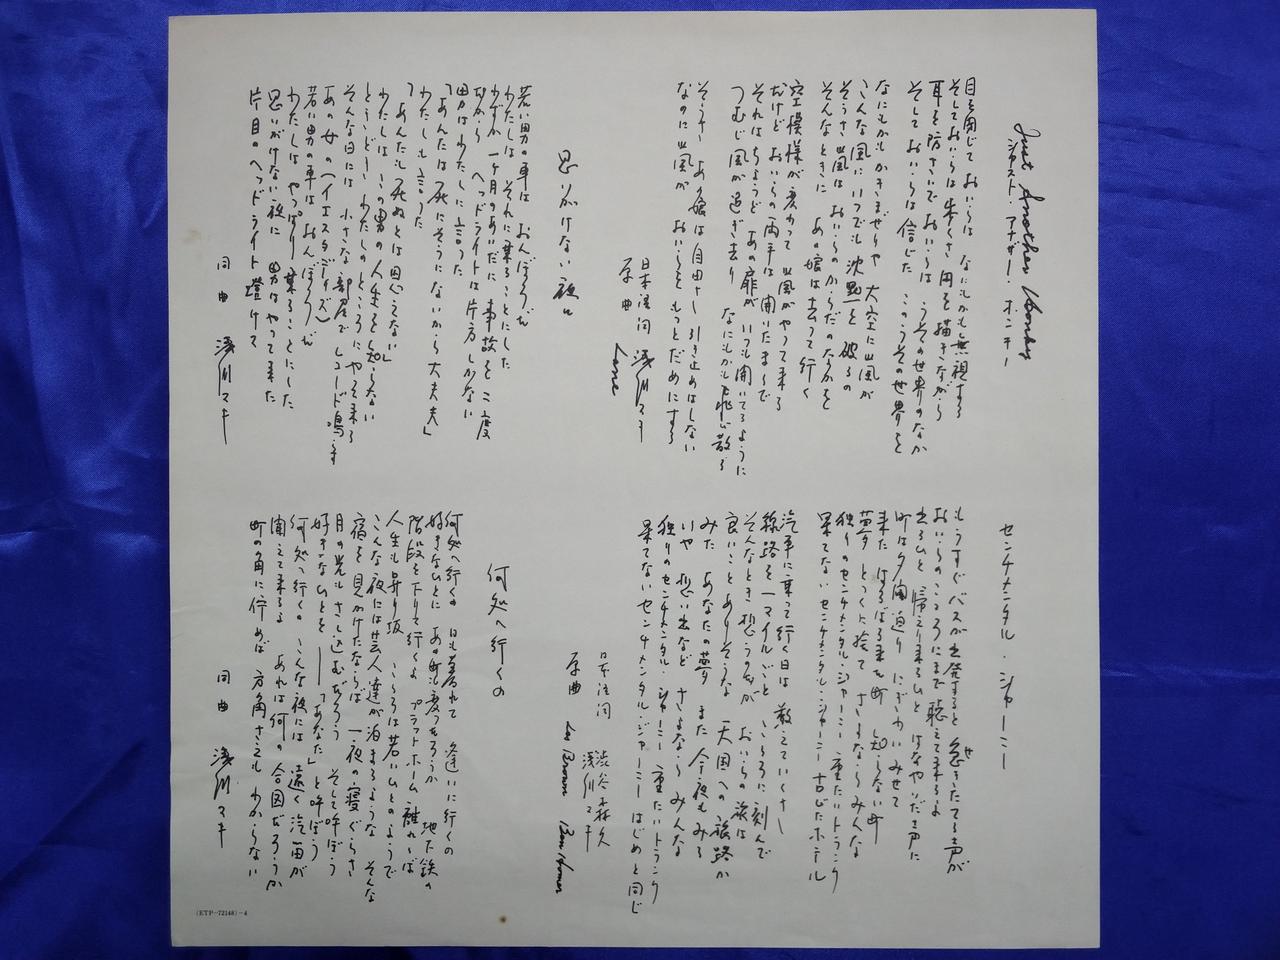 Just Another Honky
ジャスト・アナザー・ホンキー
目を閉じて おいらは なにもかも無視する
そしておいらは朱くさ 円を描きながら
耳を防さいで おいらは うその世界のなか
そして おいらは信じた このうその世界を
なにもかもかきまぜりゃ 大空に出風が
こんな風にいつでも沈黙を破るの
そうさ出風は おいらのからだのなかを
そんなときに あの娘は去って行く
空模様が変わって 出風がやって来る
だけど おいらの両手は 開いたまゝで
それはちょうど あの扉が いつも開いてるように
つむじ風が過ぎ去り なにもかも飛び散る
そうさー あの娘は自由さー 引き止めはしない
なのに出風が おいらを もっとだめにする
日本語詞 浅川マキ
原曲 Lane
思いがけない夜に
若い男の車は おんぼろだ
わたしは それに乗ることにした
わずか 一ヶ月のあいだに 事故を二度
だから ヘッドライトは片方しかない
男はわたしに言った
「あんたは 死にそうにないから大夫夫」
わたしも言った
「あんたも 死ぬとは思えない」
わたしは この男の人生を知らない
とうこどき わたしのところにやって来る
そんな日には 小さな部屋で レコード鳴らす
あの女の(イエスタデーリズ)
若い男の車は おんぼろだ
わたしは やっぱり乗ることにした
思いがけない夜に 男はやって来た
片目のヘッドライト燈けて
同曲 浅川マキ
センチメンタル・ジャーニー
もうすぐバスが出発すると 急きたてる声が
おいらのこころにまで 聴えて来るよ
出るひと 帰えり来るひと はなやいだ声に
町は夕闇迫り にぎわいみせて
来た はるばる来た町 知らない町
夢 とっくに捨て さよならみんな
独りのセンチメンタル・ジャーニー 重たいトランク
果てない センチメンタル・ジャーニー 古びたホテル
汽車に乗って行く日は 数えていくさー
線路を 一マイルごと こころに刻んで
そんなとき想うのが おいらの旅は
良いことありそうな 天国への旅路か
みた あなたの夢 また今夜もみる
いや 想い出など さよなら みんな
独りのセンチメンタル・ジャーニー 重たいトランク
果てない センチメンタル・ジャーニー はじめと同じ
日本語詞 渋谷森久
浅川マキ
原曲 Les Brown Ben Homer
何処へ行くの
何処へ行くの 日も暮れて 逢いに行くの
好きなひとに あの町も変ったろうか 地下鉄の
階段を下りて行くよ プラットホーム 離れれば
人生も昇り坂 こころは若いひとのようで
こんな夜には芸人達が泊まるような そんな
宿を見かけたならば 一夜の寝ぐらさ
月の光も さし込むだろう そして呼ぼう
好きなひとを ——「あなた」と呼ぼう
何処へ行くの こんな夜には 遠く汽笛が
聞えて来るよ あれは何の合図だろうか
町の角に佇めば 方角さえも わからない
同曲 浅川マキ
(ETP-72148)-4